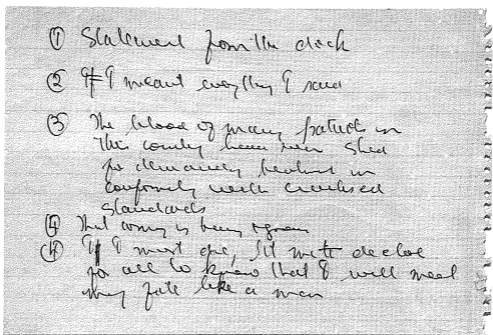 ① Statement from the dock
② I meant everything I said
③ The blood of many patriots in
this country have been shed
for demanding treatment in
conformity with civilised
standards
④ That army is being & grown
④ If I must die, let me declare
for all to know that I will meet
my fate like a man